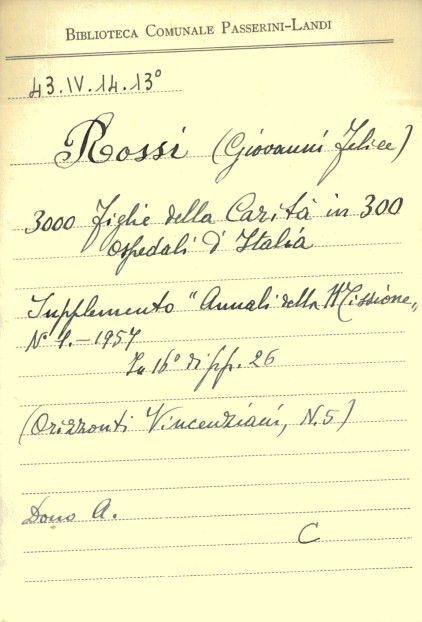 BIBLIOTECA COMUNALE PASSERINI-LANDI
43.IV.14.13°
Rossi (Giovanni Felice)
3000 Figlie della Carità in 300
Ospedali d'Italia
Supplemento "Annali della Missione"
N° 1.-1957
In 16° di pp. 26
(Orizzonti Vincenziani, N.5)
Dono A.
C